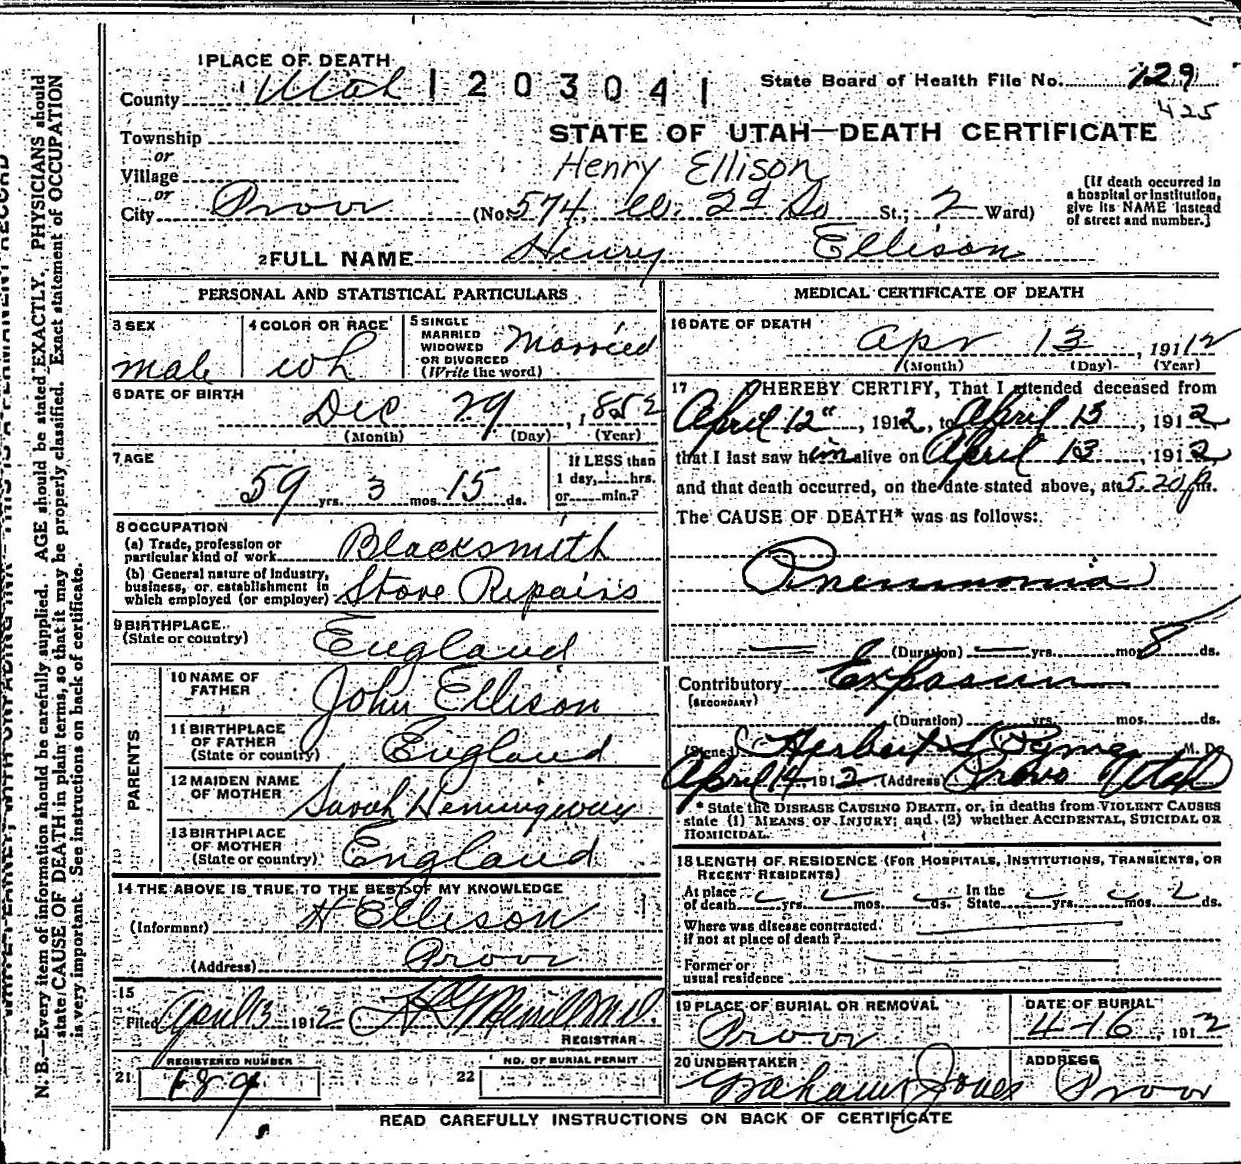 1 PLACE OF DEATH
County Utah 1203041 State Board of Health File No. 129
425
Township
or
STATE OF UTAH—DEATH CERTIFICATE
Village
or
Henry Ellison
City Provo (No. 574, W. 2d So St.; 2 Ward)
[If death occurred in
a hospital or institution,
give its NAME instead
of street and number.]
2 FULL NAME Henry Ellison
PERSONAL AND STATISTICAL PARTICULARS
3 SEX
male
4 COLOR OR RACE
wh
5 SINGLE
MARRIED
WIDOWED
OR DIVORCED
(Write the word)
Married
6 DATE OF BIRTH
Dec 29, 1852
(Month) (Day) (Year)
7 AGE
59 yrs. 3 mos. 15 ds.
If LESS than
1 day, hrs.
or min.?
8 OCCUPATION
(a) Trade, profession or
particular kind of work Blacksmith
(b) General nature of industry,
business, or establishment in
which employed (or employer) Stove Repairs
9 BIRTHPLACE
(State or country) England
PARENTS
10 NAME OF
FATHER John Ellison
11 BIRTHPLACE
OF FATHER
(State or country) England
12 MAIDEN NAME
OF MOTHER Sarah Hemingway
13 BIRTHPLACE
OF MOTHER
(State or country) England
14 THE ABOVE IS TRUE TO THE BEST OF MY KNOWLEDGE
(Informant) H Ellison
(Address) Provo
15
Filed April 13 1912
REGISTRAR
REGISTERED NUMBER
21 189
NO. OF BURIAL PERMIT
22
MEDICAL CERTIFICATE OF DEATH
16 DATE OF DEATH
Apr 13, 1912
(Month) (Day) (Year)
17 I HEREBY CERTIFY, That I attended deceased from
April 12", 1912, to April 13, 1912
that I last saw him alive on April 13, 1912
and that death occurred, on the date stated above, at 5.20 p.m.
The CAUSE OF DEATH* was as follows:
Pneumonia
(Duration) yrs. mos. 8 ds.
Contributory Exposure
(SECONDARY)
(Duration) yrs. mos. ds.
(Signed) Herbert S Pyne M. D.
April 14, 1912 (Address) Provo Utah
* State the DISEASE CAUSING DEATH, or, in deaths from VIOLENT CAUSES
state (1) MEANS OF INJURY; and (2) whether ACCIDENTAL, SUICIDAL OR
HOMICIDAL.
18 LENGTH OF RESIDENCE (FOR HOSPITALS, INSTITUTIONS, TRANSIENTS, OR
RECENT RESIDENTS)
At place
of death yrs. mos. ds.
In the
State yrs. mos. ds.
Where was disease contracted,
if not at place of death?
Former or
usual residence
19 PLACE OF BURIAL OR REMOVAL
Provo
DATE OF BURIAL
4-16, 1912
20 UNDERTAKER
Grahams Jones
ADDRESS
Provo
READ CAREFULLY INSTRUCTIONS ON BACK OF CERTIFICATE
N. B.—Every item of information should be carefully supplied. AGE should be stated EXACTLY. PHYSICIANS should
state CAUSE OF DEATH in plain terms, so that it may be properly classified. Exact statement of OCCUPATION
is very important. See instructions on back of certificate.